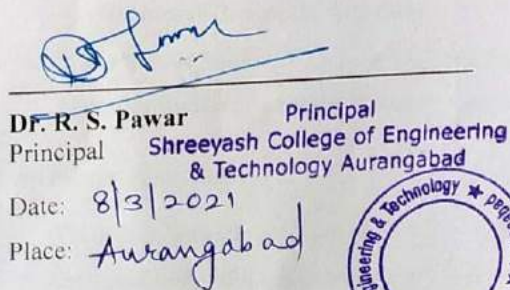 Dr. R. S. Pawar
Principal
Principal
Shreeyash College of Engineering
& Technology Aurangabad
Date: 8/3/2021
Place: Aurangabad
Engineering & Technology ★